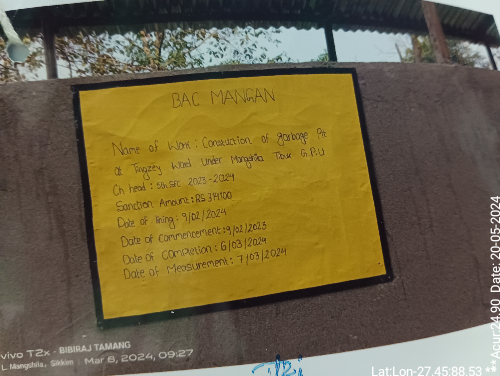 BAC MANGAN
Name of Work : Constuction of garbage Pit
at Tingzey Ward under Mangshila Tibuk G.P.U
Ch head : 5th SFC 2023-2024
Sanction Amount : RS 314100
Date of lining : 9/02/2024
Date of commencement : 9/02/2023
Date of Completion : 6/03/2024
Date of Measurement : 7/03/2024
vivo T2x · BIBIRAJ TAMANG
L. Mangshila, Sikkim Mar 8, 2024, 09:27
Lat:Lon-27.45.88.53
**Acur24.90 Date: 20-05-2024